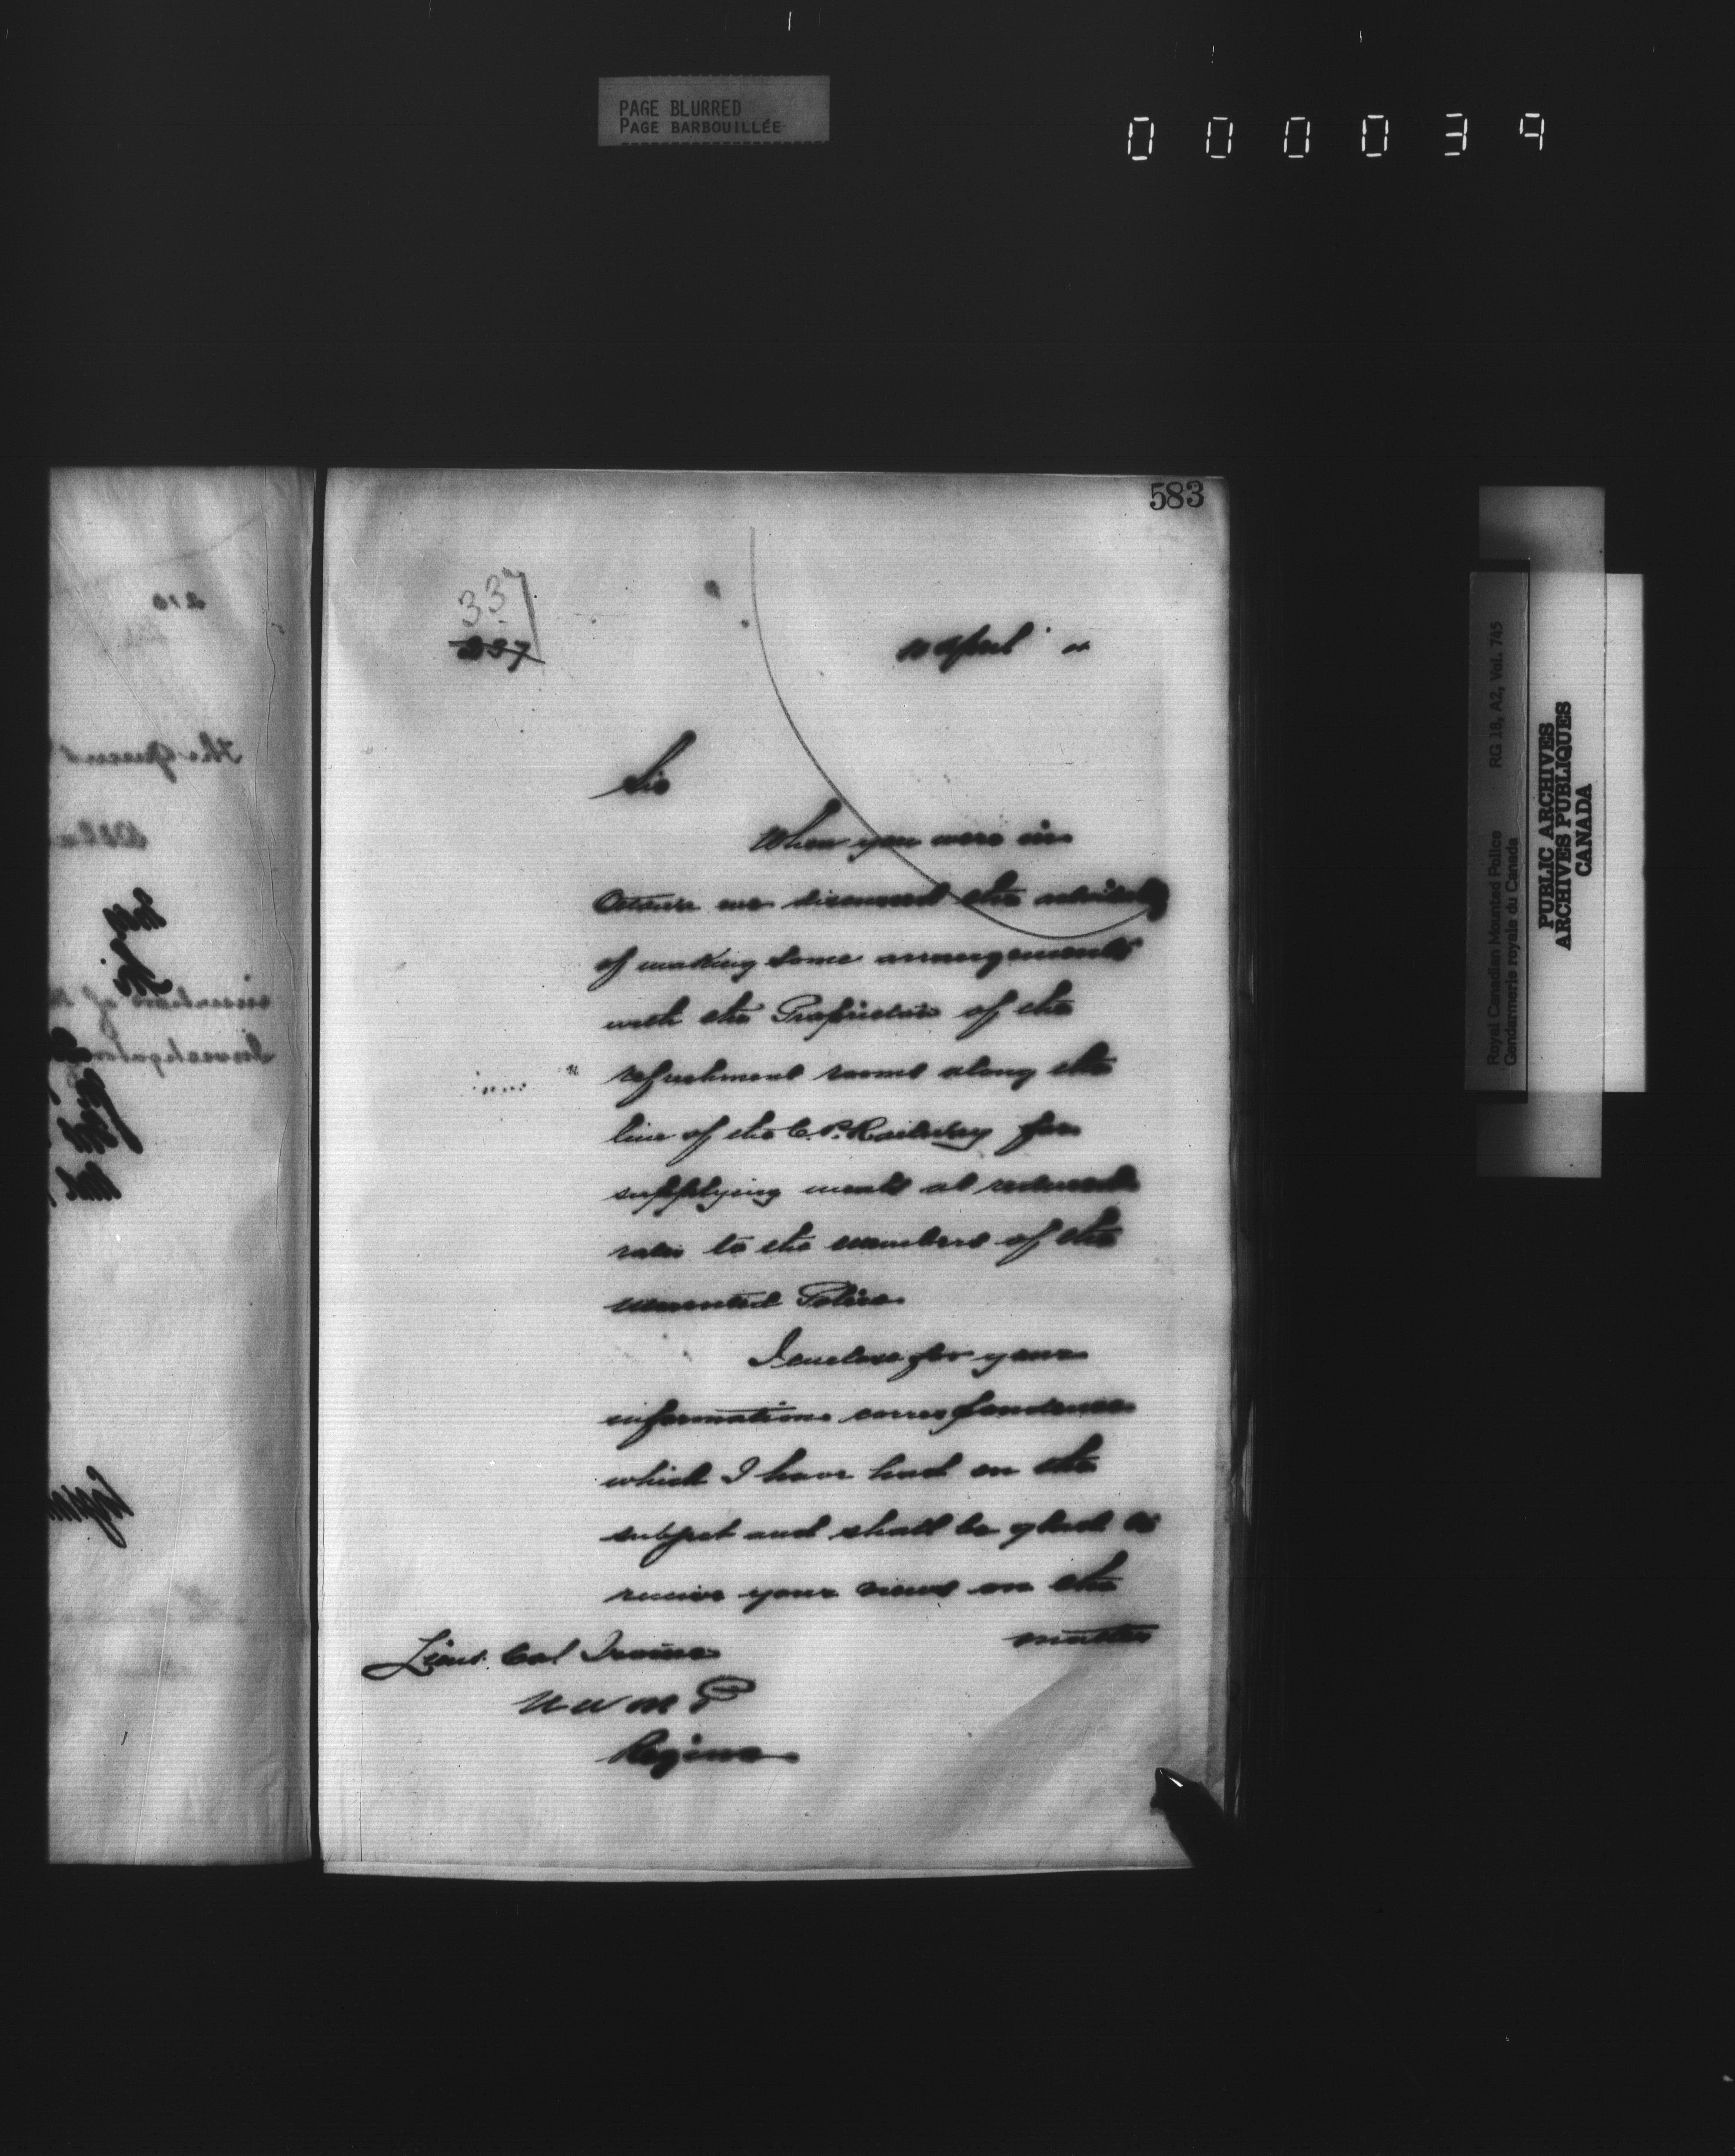 PAGE BLURRED
PAGE BARBOUILLÉE
000039
583
337
237
April
Sir
When you were in
Ottawa we discussed the advisability
of making some arrangements
with the Proprietor of the
refreshment rooms along the
line of the C. P. Railway for
supplying meals at reduced
rates to the members of the
mounted Police.
I enclose for your
information correspondence
which I have had on the
subject and shall be glad to
receive your views on the
matter
Lieut. Col Irvine
N W M P
Regina
Royal Canadian Mounted Police RG 18, A2, Vol. 745
Gendarmerie royale du Canada
PUBLIC ARCHIVES
ARCHIVES PUBLIQUES
CANADA